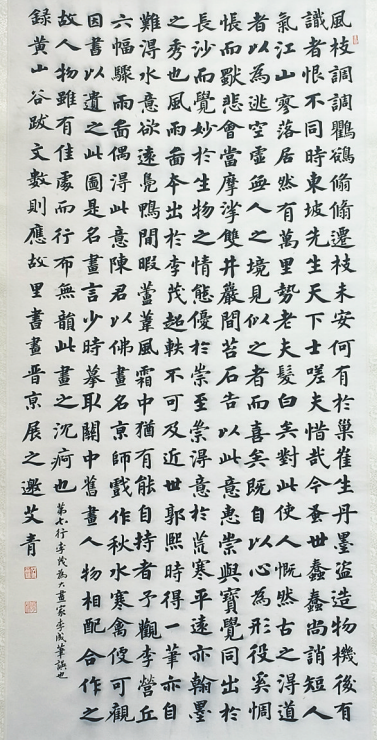 風枝調調鸜鵒翛翛遷枝未安何有於巢崔生丹墨盜造物機後有
識者恨不同時東坡先生天下士嗟夫惜哉今蚤世蠢蠢尚誚短人
氣江山寥落居然有萬里勢老夫髮白矣對此使人慨然古之得道
者以為逃空虛無人之境見似之者而喜矣既自以心為形役奚惆
悵而獸悲會當摩挲雙井巖間苔石告以此意惠崇與寶覺同出於
長沙而覺妙於生物之情態優於崇至崇得意於荒寒平遠亦翰墨
之秀也風雨畵本出於李茂超軼不可及近世郭熙時得一筆亦自
難得水意欲遠鳧鴨間暇蘆葦風霜中猶有能自持者予觀李營丘
六幅驟雨畵偶得此意陳君以佛畫名京師戲作秋水寒禽便可觀
因書以遺之此圖是名畫言少時摹取關中舊畫人物相配合作之
故人物雖有佳處而行布無韻此畫之沉痾也
第七行李茂為大畫家李成筆誤也
錄黃山谷跋文數則應故里書畫晉京展之邀艾青